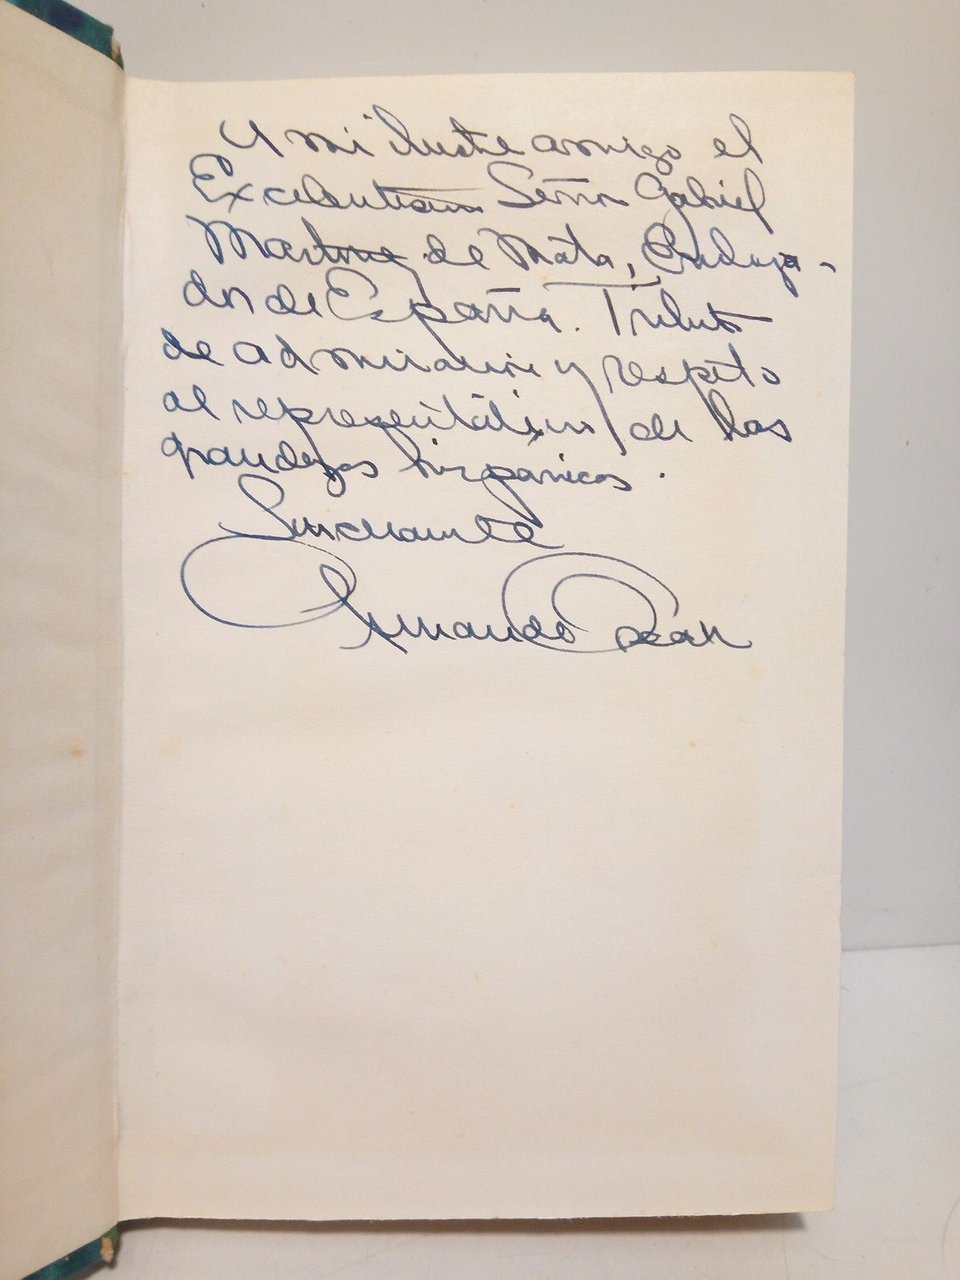 A mi ilustre amigo el
Excelentisimo Señor Gabriel
Martinez de Mata, Embaja-
dor de España. Tributo
de admiración y respeto
al representativo de las
grandezas hispanicas.
Sinceramente
Armando